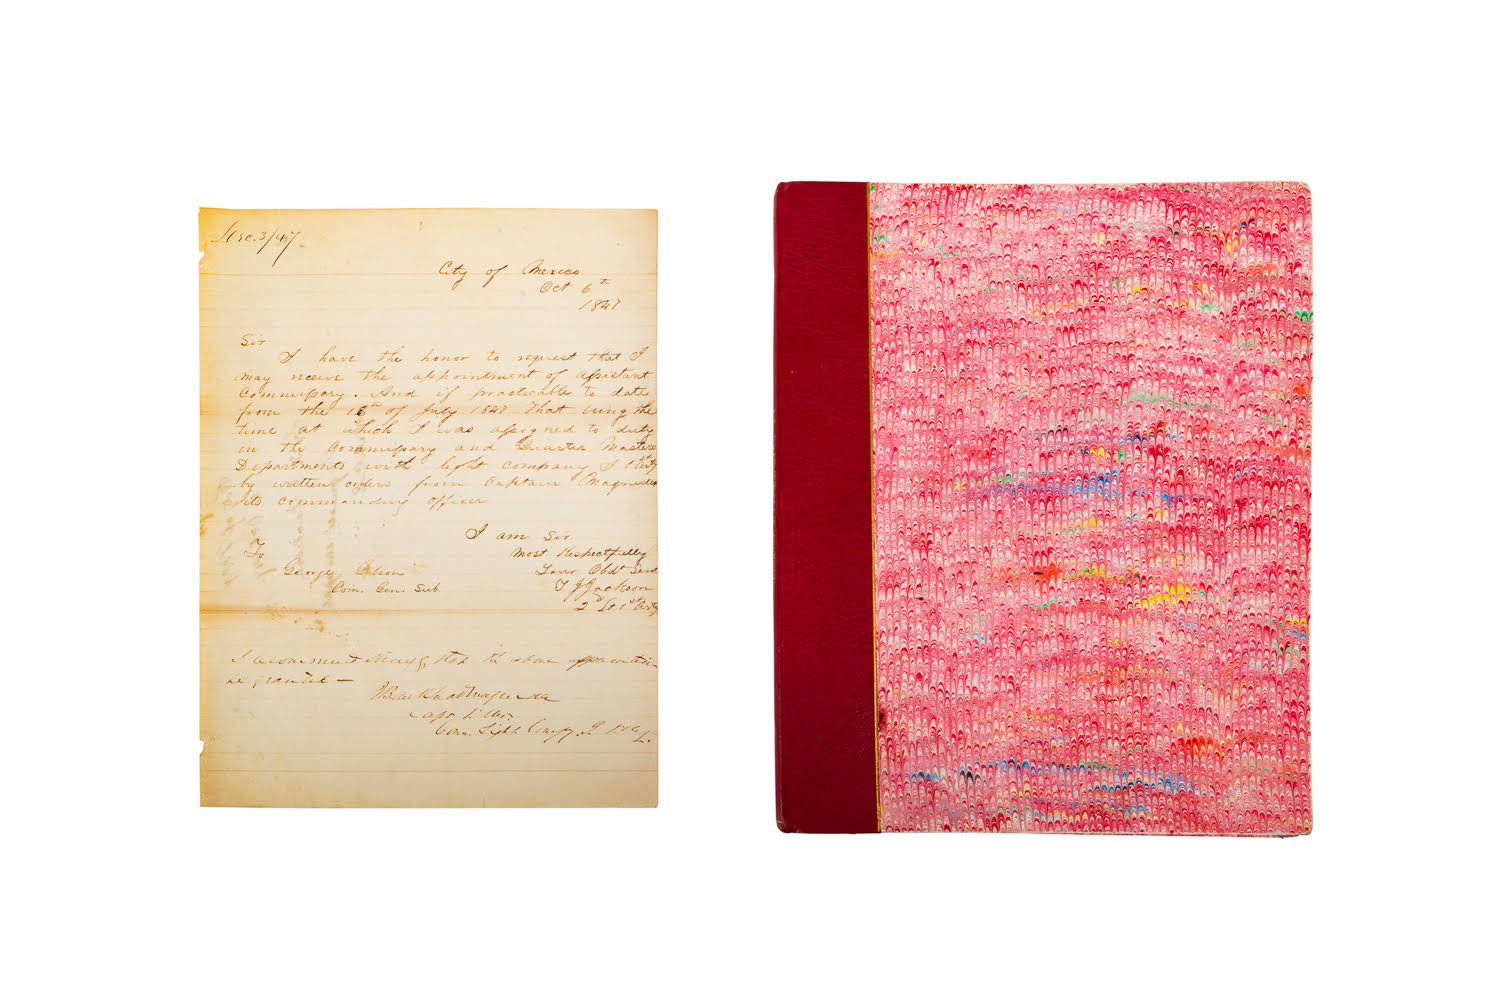 Dec. 3/47
City of Mexico
Oct 6th
1847
Sir
I have the honor to request that I
may receive the appointment of assistant
Commissary. And if practicable to date
from the 15th of July 1847 that being the
time at which I was assigned to duty
in the Commissary and Quarter Masters
Departments with light company I 1st Arty
by written orders from Captain Magruder
its commanding officer
I am Sir
Most Respectfully
To
Your Obdt Servt
George
T J Jackson
Com. Gen. Sub.
2d Lt 1st Arty
I recommend that the above
be granted —
Magruder
Capt 1 Art.
Com. Light Compy. I